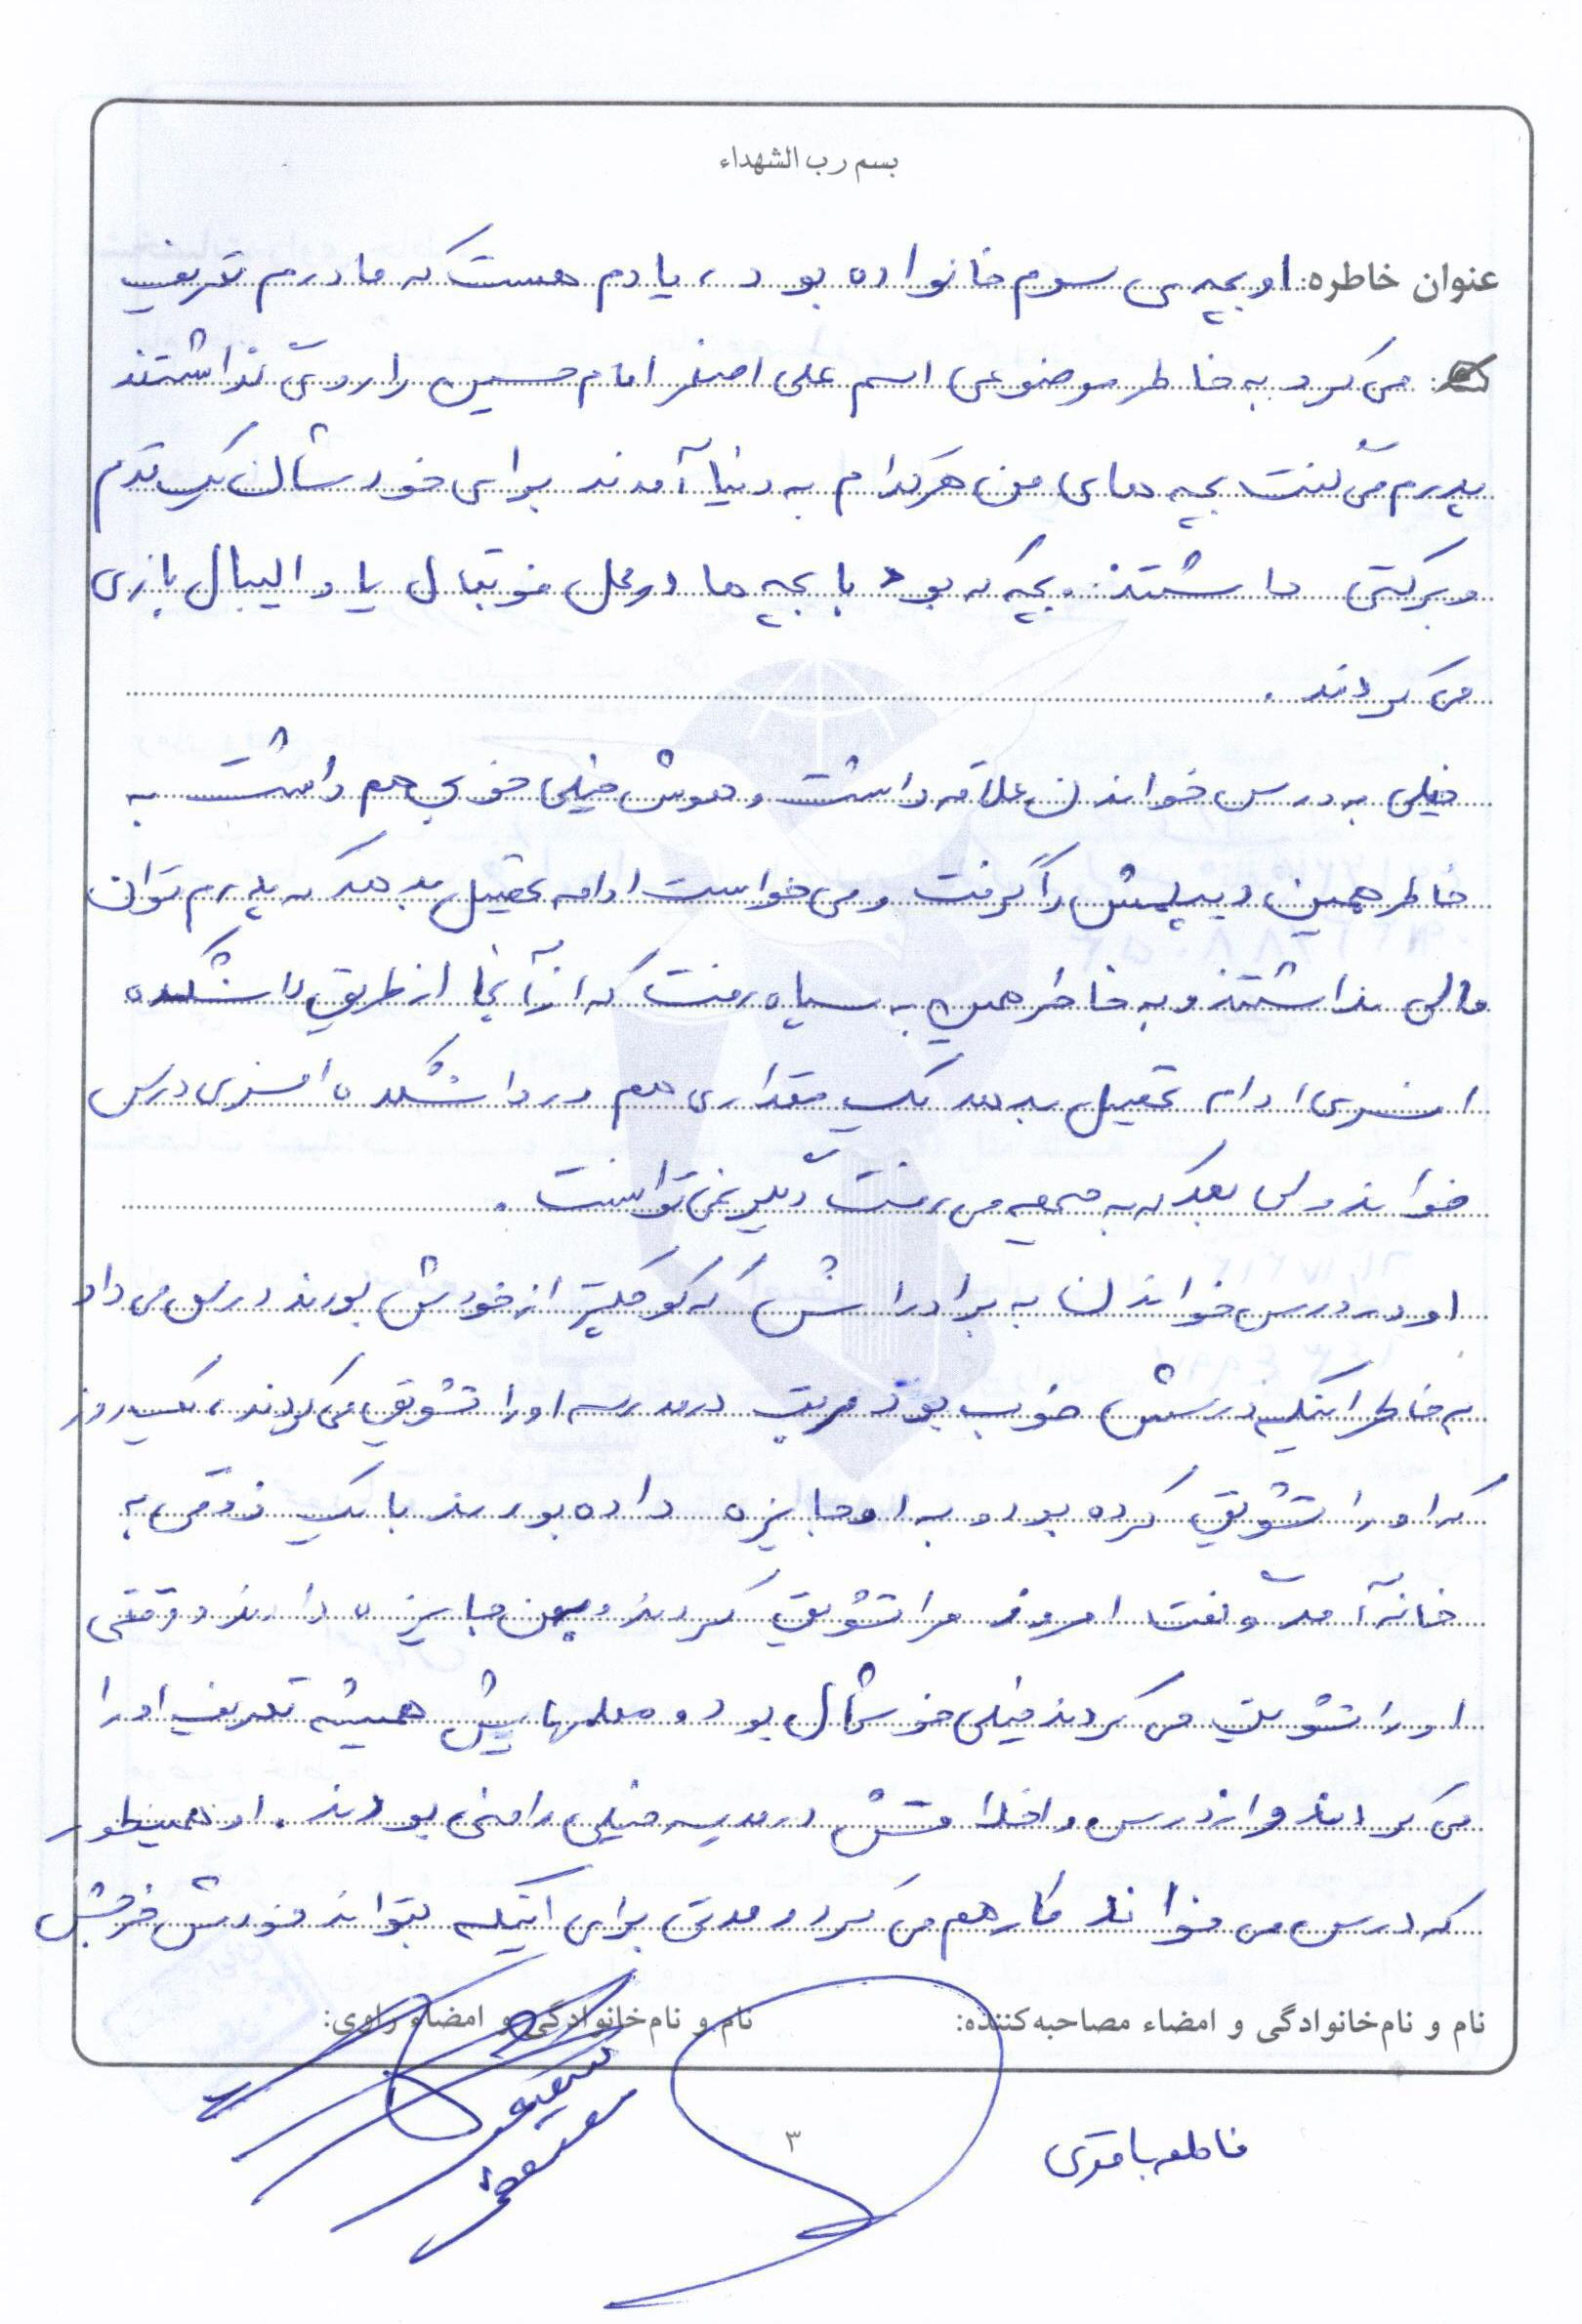 بسم رب الشهداء
عنوان خاطره: او بچه ی سوم خانواده بود، یادم هست که مادرم تعریف
می کرد به خاطر موضوعی اسم علی اصغر امام حسین را روی گذاشتند
پدرم می گفت بچه های من هرکدام به دنیا آمدند برای خودشان یک قدم
و برکتی داشتند. بچه که بود با بچه ها در محل فوتبال یا والیبال بازی
می کردند.
خیلی به درس خواندن علاقه داشت و هوش خیلی خوبی هم داشت به
خاطر همین دیپلمش را گرفت و می خواست ادامه تحصیل بدهد که پدرم توان
مالی نداشتند و به خاطر همین به سپاه رفت که از آنجا از طریق دانشکده
افسری ادامه تحصیل بدهد یک مقداری هم در دانشکده افسری درس
خواند ولی بعد که به جبهه می رفت دیگر نمی توانست.
او در درس خواندن به برادرانش که کوچکتر از خودش بودند درس می داد
به خاطر اینکه درسش خوب بود مرتب در مدرسه او را تشویق می کردند، یک روز
که او را تشویق کرده بود و به او جایزه داده بودند با یک ذوقی به
خانه آمد و گفت امروز مرا تشویق کردند و بهن جایزه دادند و وقتی
او را تشویق می کردند خیلی خوشحال بود و معلمهایش همیشه تعریف او را
می کردند و از درس و اخلاقش در مدرسه خیلی راضی بودند. او همینطور
که درس می خواند کار هم می کرد و مدتی برای اینکه بتواند خودش خرجش
نام و نام خانوادگی و امضاء مصاحبه کننده:
نام و نام خانوادگی و امضاء راوی:
فاطمه باقری
۳